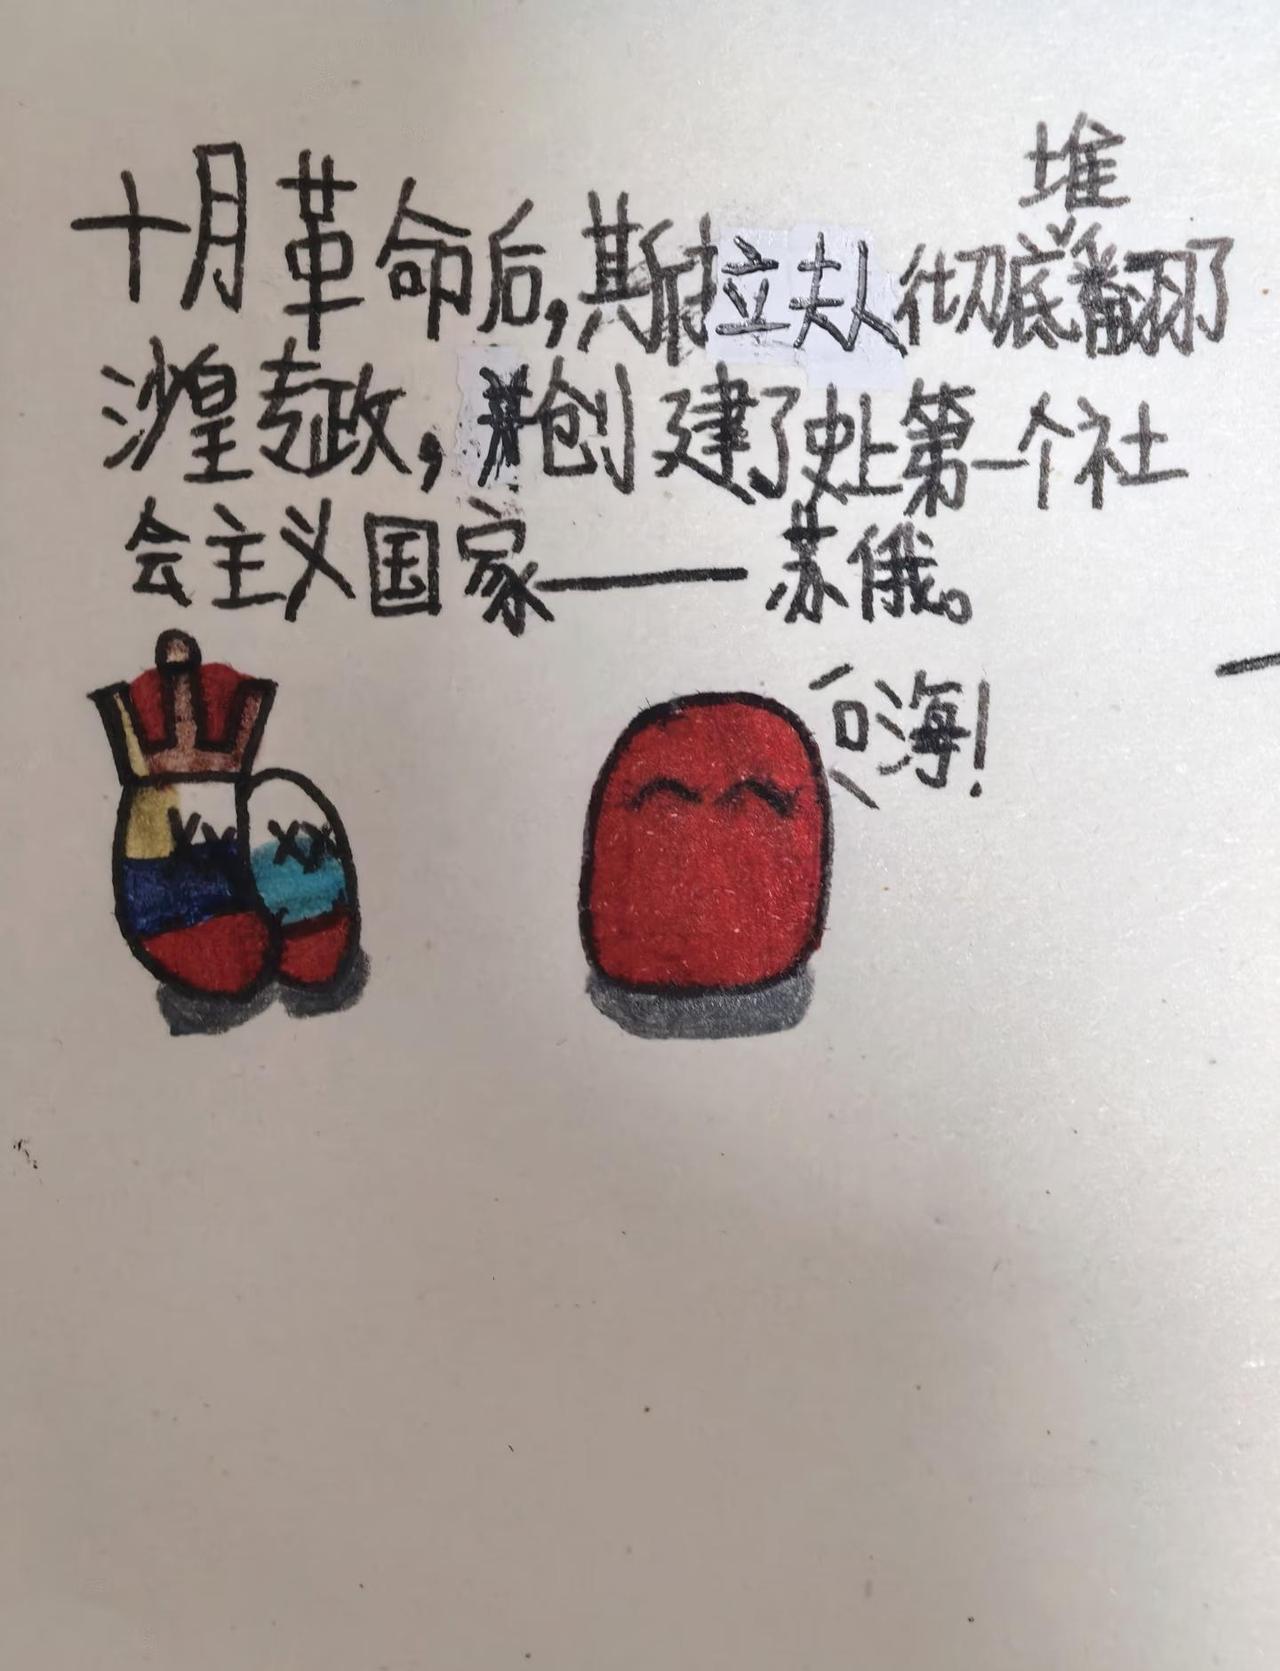 十月革命后,斯拉夫人彻底堆翻了
沙皇专政,并创建了史上第一个社
会主义国家——苏俄。
嗨!
XX XX